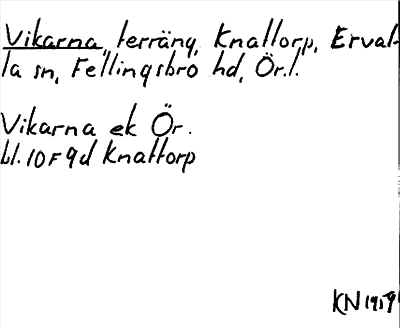 Vikarna, terräng, Knattorp, Erval-
la sn, Fellingsbro hd, Ör.l.
Vikarna ek Ör.
bl. 10F9d Knattorp
KN 1959